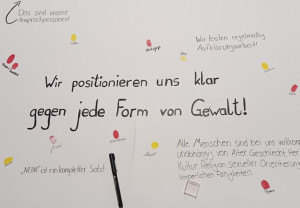 Das sind unsere
Ansprechpersonen!
Wir leisten regelmäßig
Aufklärungsarbeit!
Wir positionieren uns klar
gegen jede Form von Gewalt!
Alle Menschen sind bei uns willkommen
unabhängig von Alter, Geschlecht, Her
Kultur, Religion, sexueller Orientierung
körperlichen Fähigkeiten.
"NEIN" ist ein kompletter Satz!